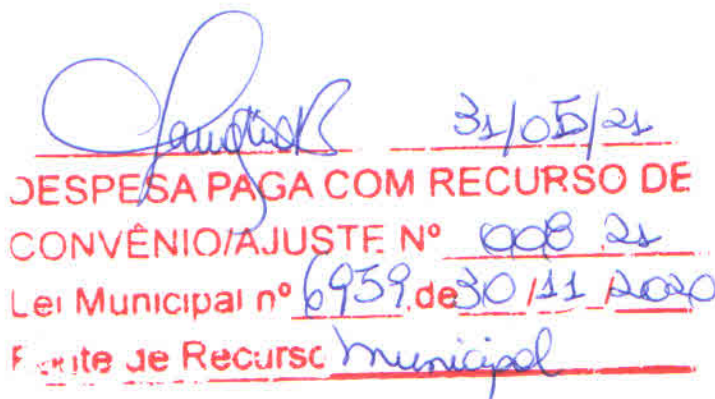 31/05/21
DESPESA PAGA COM RECURSO DE
CONVÊNIO/AJUSTE Nº 008 21
Lei Municipal nº 6959, de 30/11/2020
Fonte de Recurso Municipal